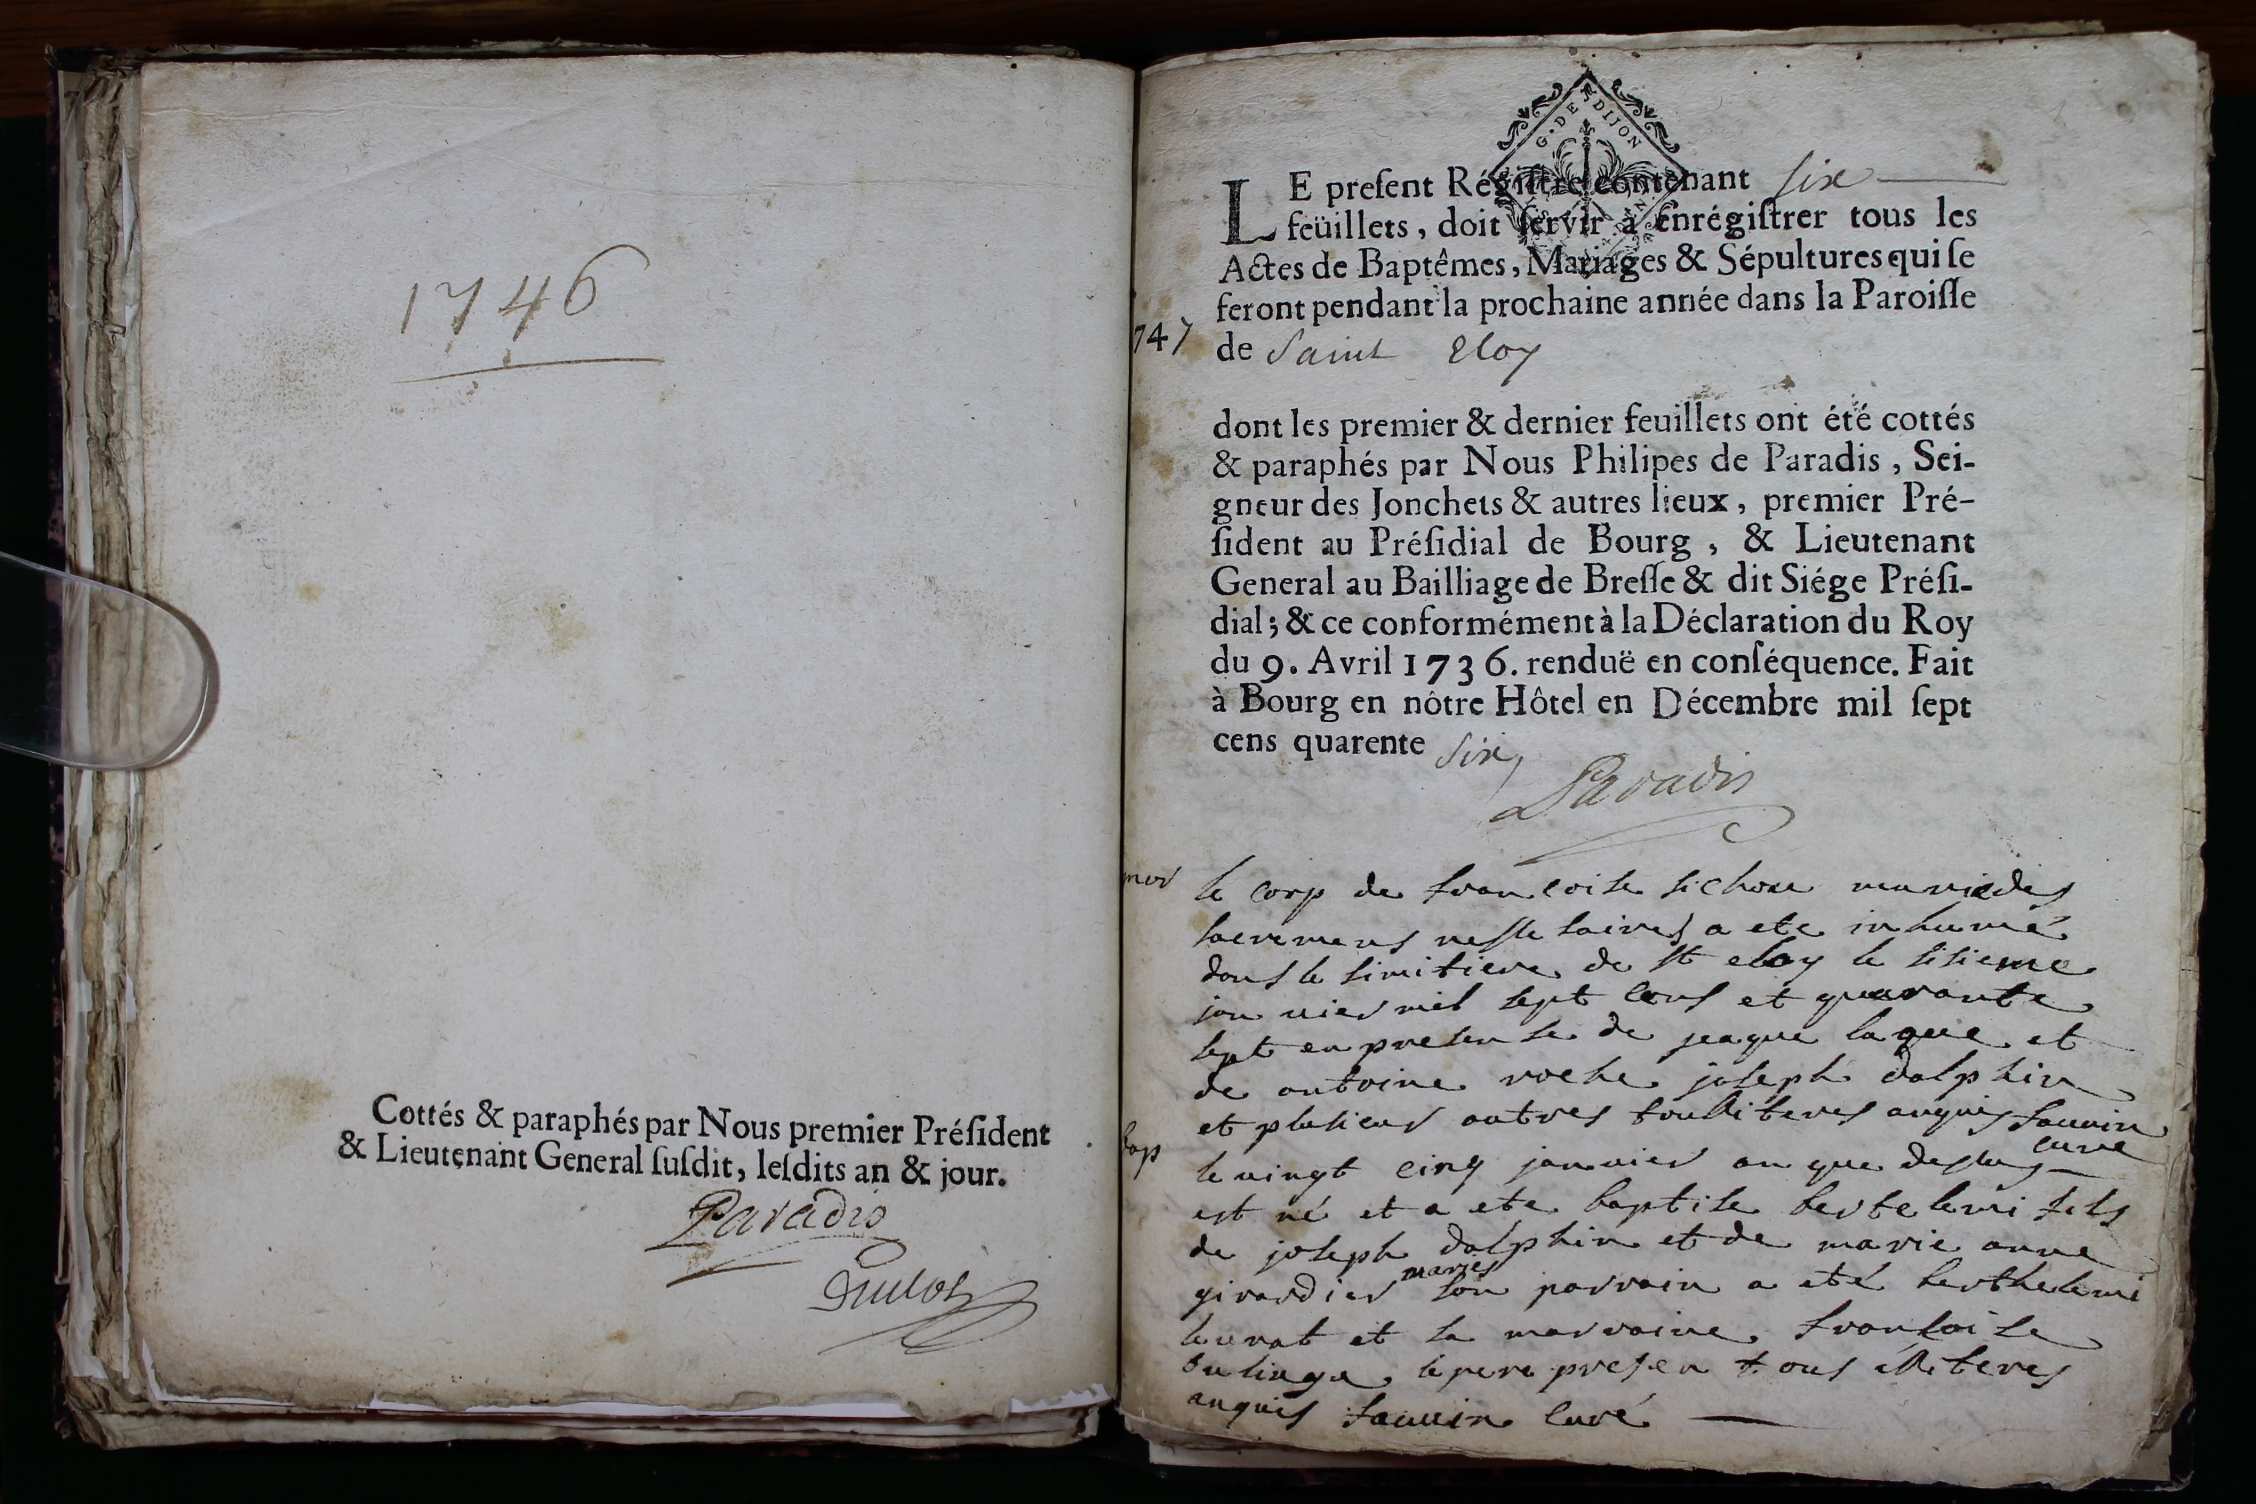 1746
Cottés & paraphés par Nous premier Préſident
& Lieutenant General ſuſdit, leſdits an & jour.
Paradis
G. DE DIJON
LE preſent Régiſtre contenant ſix
feüillets, doit ſervir à enrégiſtrer tous les
Actes de Baptêmes, Mariages & Sépultures qui ſe
feront pendant la prochaine année dans la Paroiſſe
747 de Saint Eloy
dont les premier & dernier feuillets ont été cottés
& paraphés par Nous Philipes de Paradis, Sei-
gneur des Jonchets & autres lieux, premier Pré-
ſident au Préſidial de Bourg, & Lieutenant
General au Bailliage de Breſſe & dit Siége Préſi-
dial; & ce conformément à la Déclaration du Roy
du 9. Avril 1736. renduë en conſéquence. Fait
à Bourg en nôtre Hôtel en Décembre mil ſept
cens quarente ſix,
Paradis
mor le corp de francoise sichou munie des
sacremens nessesaires a ete inhumé
dans le simitiere de st eloy le sisieme
janvier mil sept cens et quarante
sept en presense de jeaque laque et
de antoine roche joseph dalphin
et plusieurs autres tous illiteres anquis fauvin
curé
bap le vingt cinq janvier an que dessus
est né et a ete baptise bertelemi fils
de joseph dalphin et de marie anne
girardier mariés son parrain a eté berthelemi
leurat et la marraine francoise
le pere presen tous illiteres
anquis fauvin curé